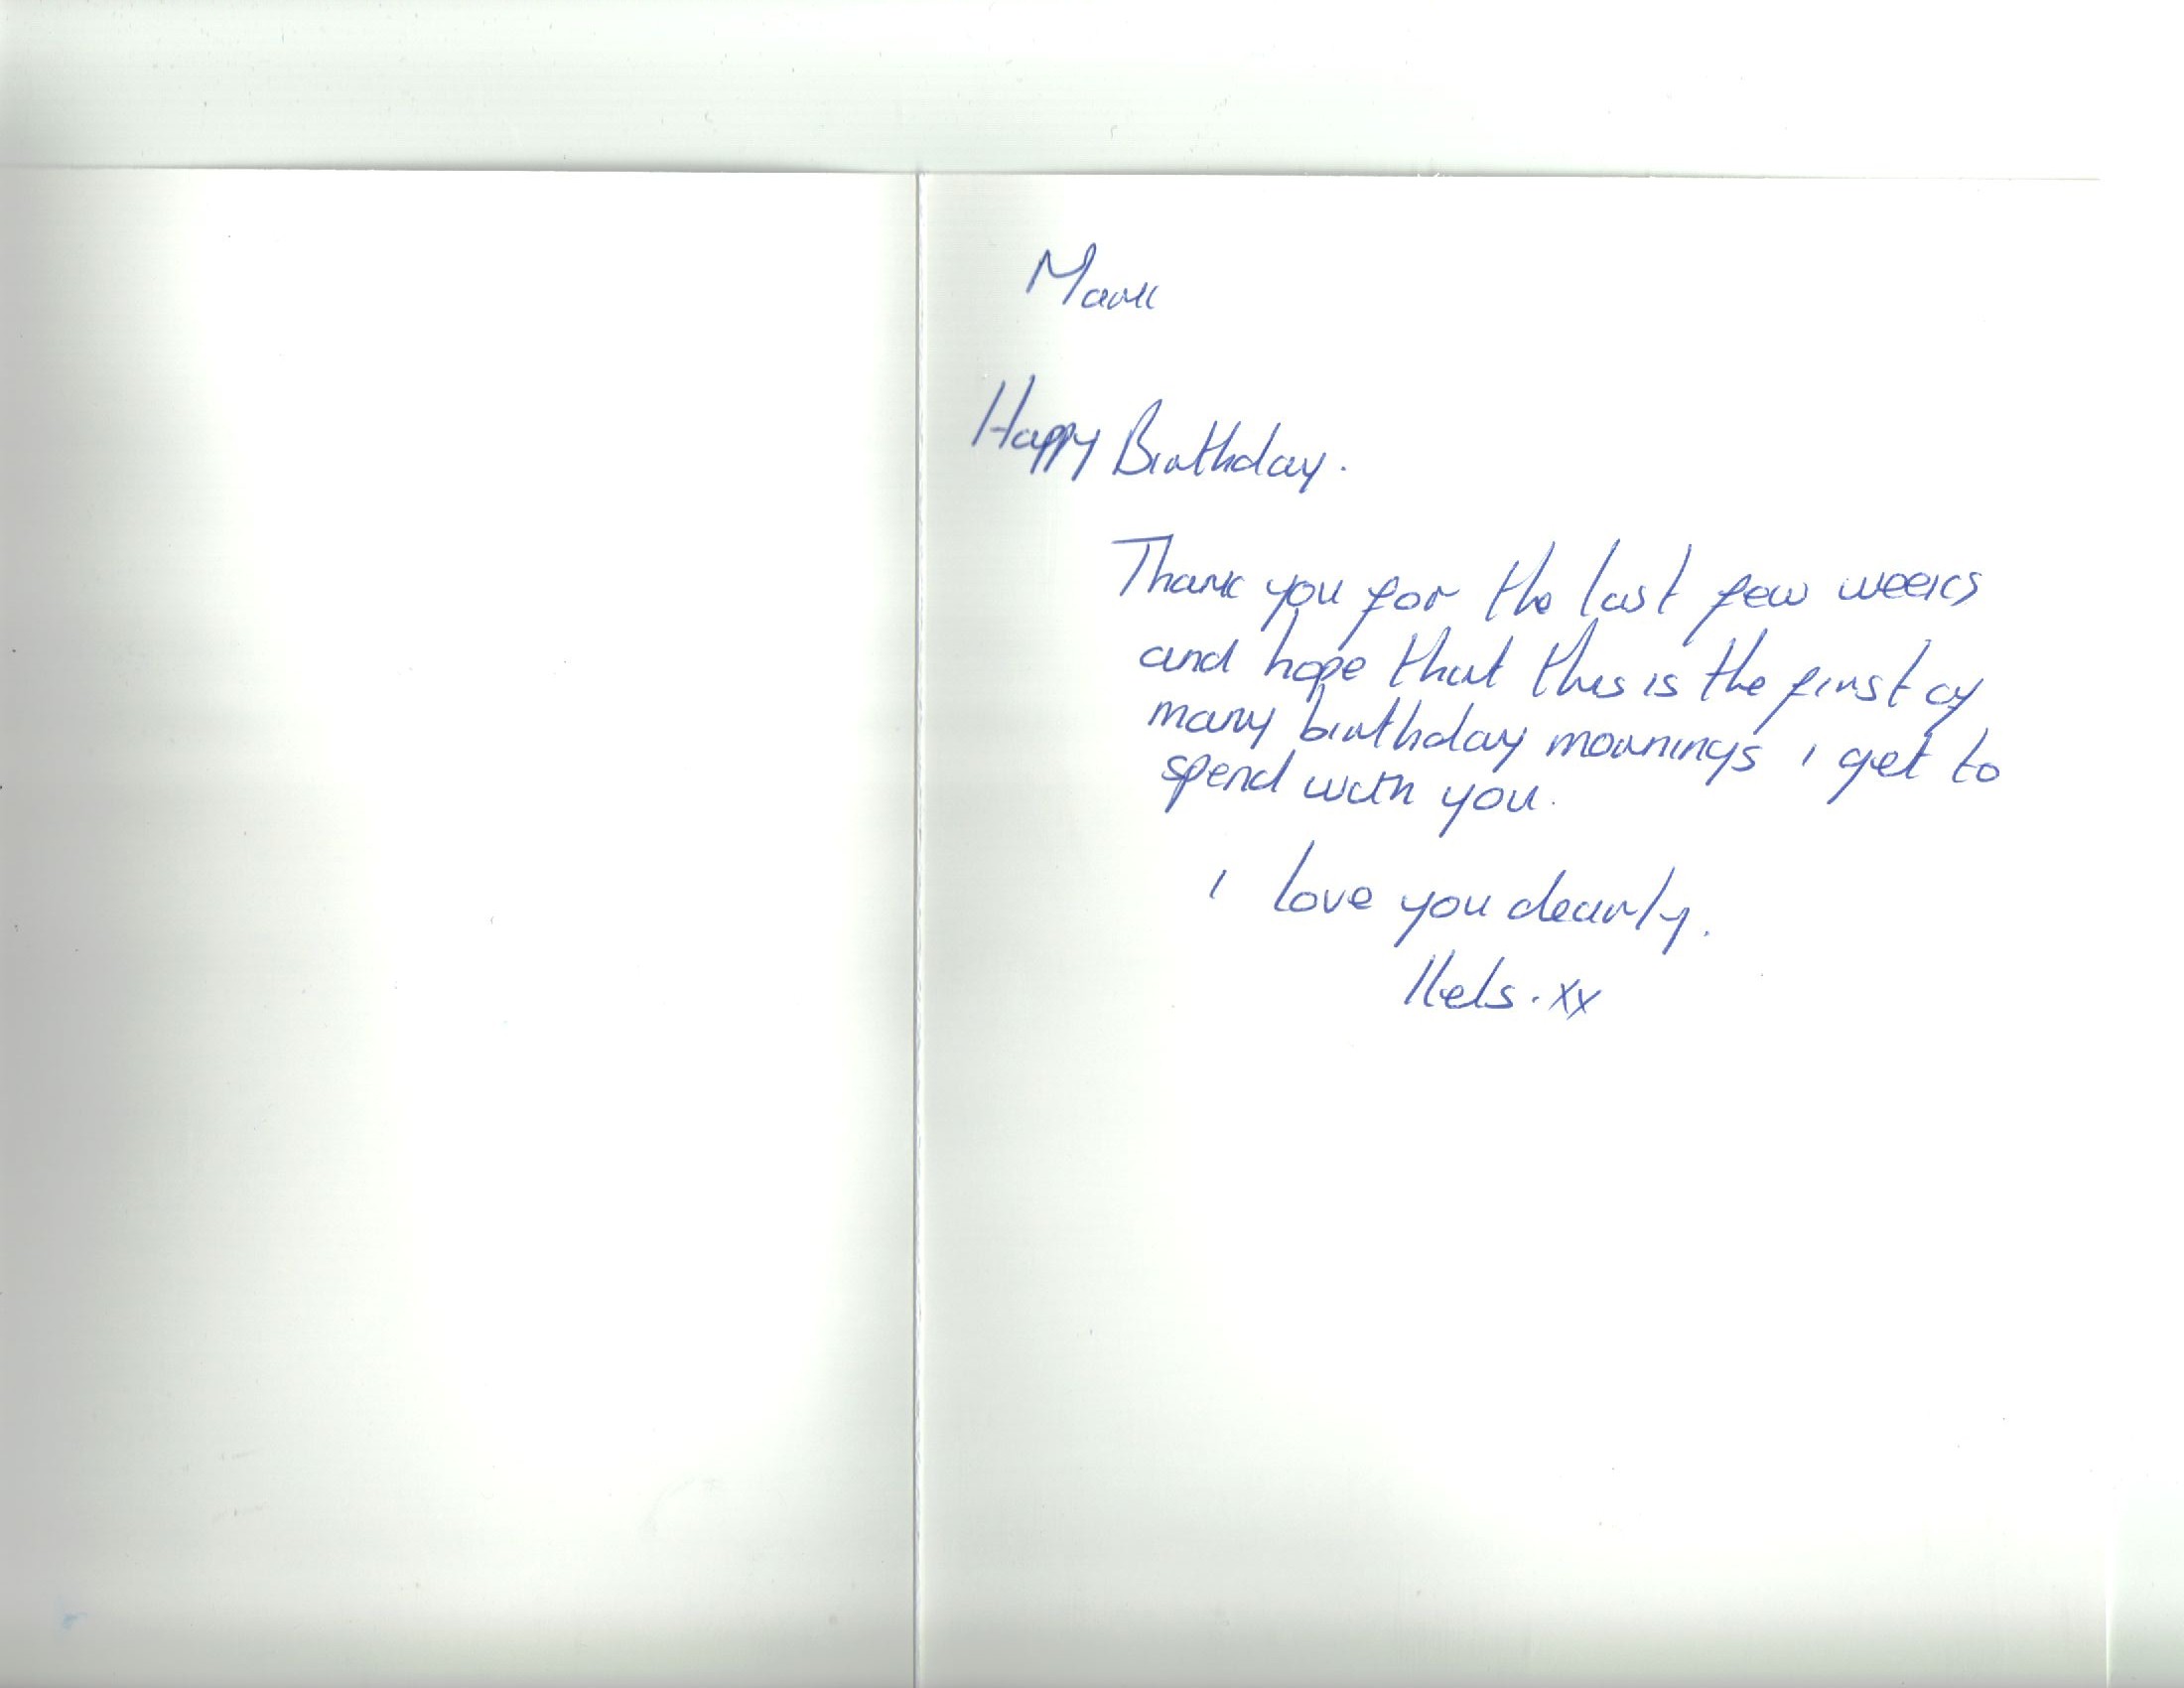 Mark
Happy Birthday.
Thank you for the last few weeks
and hope that this is the first of
many birthday mornings i get to
spend with you.
i love you dearly.
Kels. xx